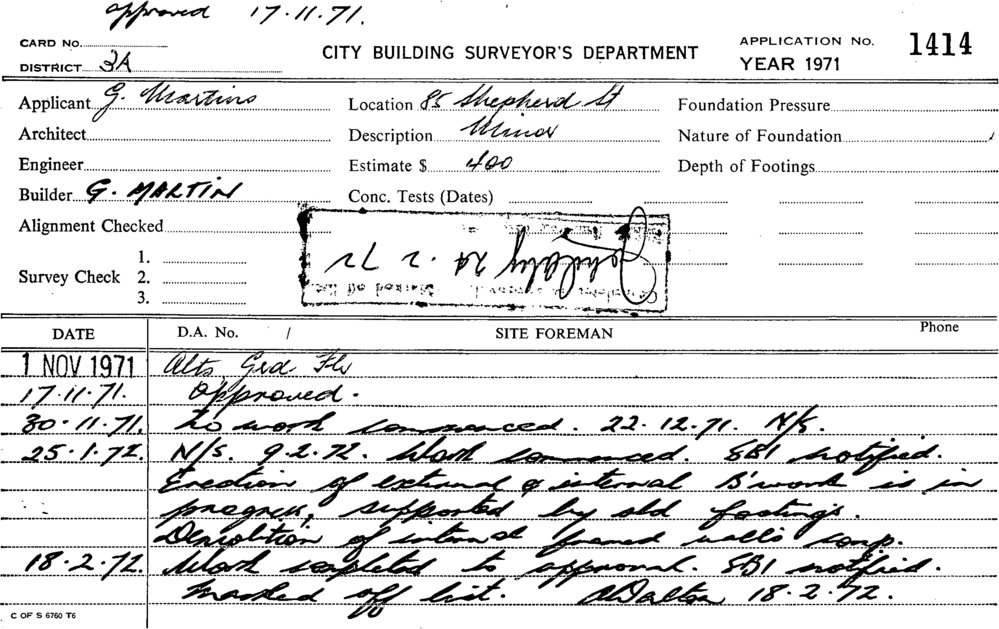 approved 17.11.71.
CARD No.
DISTRICT 3A
CITY BUILDING SURVEYOR'S DEPARTMENT
APPLICATION No. 1414
YEAR 1971
Applicant G. Martins
Location 85 Shepherd St
Foundation Pressure
Architect
Description Minor
Nature of Foundation
Engineer
Estimate $ 400
Depth of Footings
Builder G. MARTIN
Conc. Tests (Dates)
Alignment Checked
Survey Check 1.
2.
3.
24.2.72
DATE D.A. No. / SITE FOREMAN Phone
1 NOV 1971 Alts, Grd Flr
17.11.71. Approved.
30.11.71. No work commenced. 22.12.71. N/S.
25.1.72. N/S. 9.2.72. Work commenced. SBI notified.
Erection of external & internal B'work is in
progress, supported by old footings.
Demolition of internal framed walls comp.
18.2.72. Work completed to approval. SBI notified.
Marked off list. ADalton 18.2.72.
C OF S 6760 T6